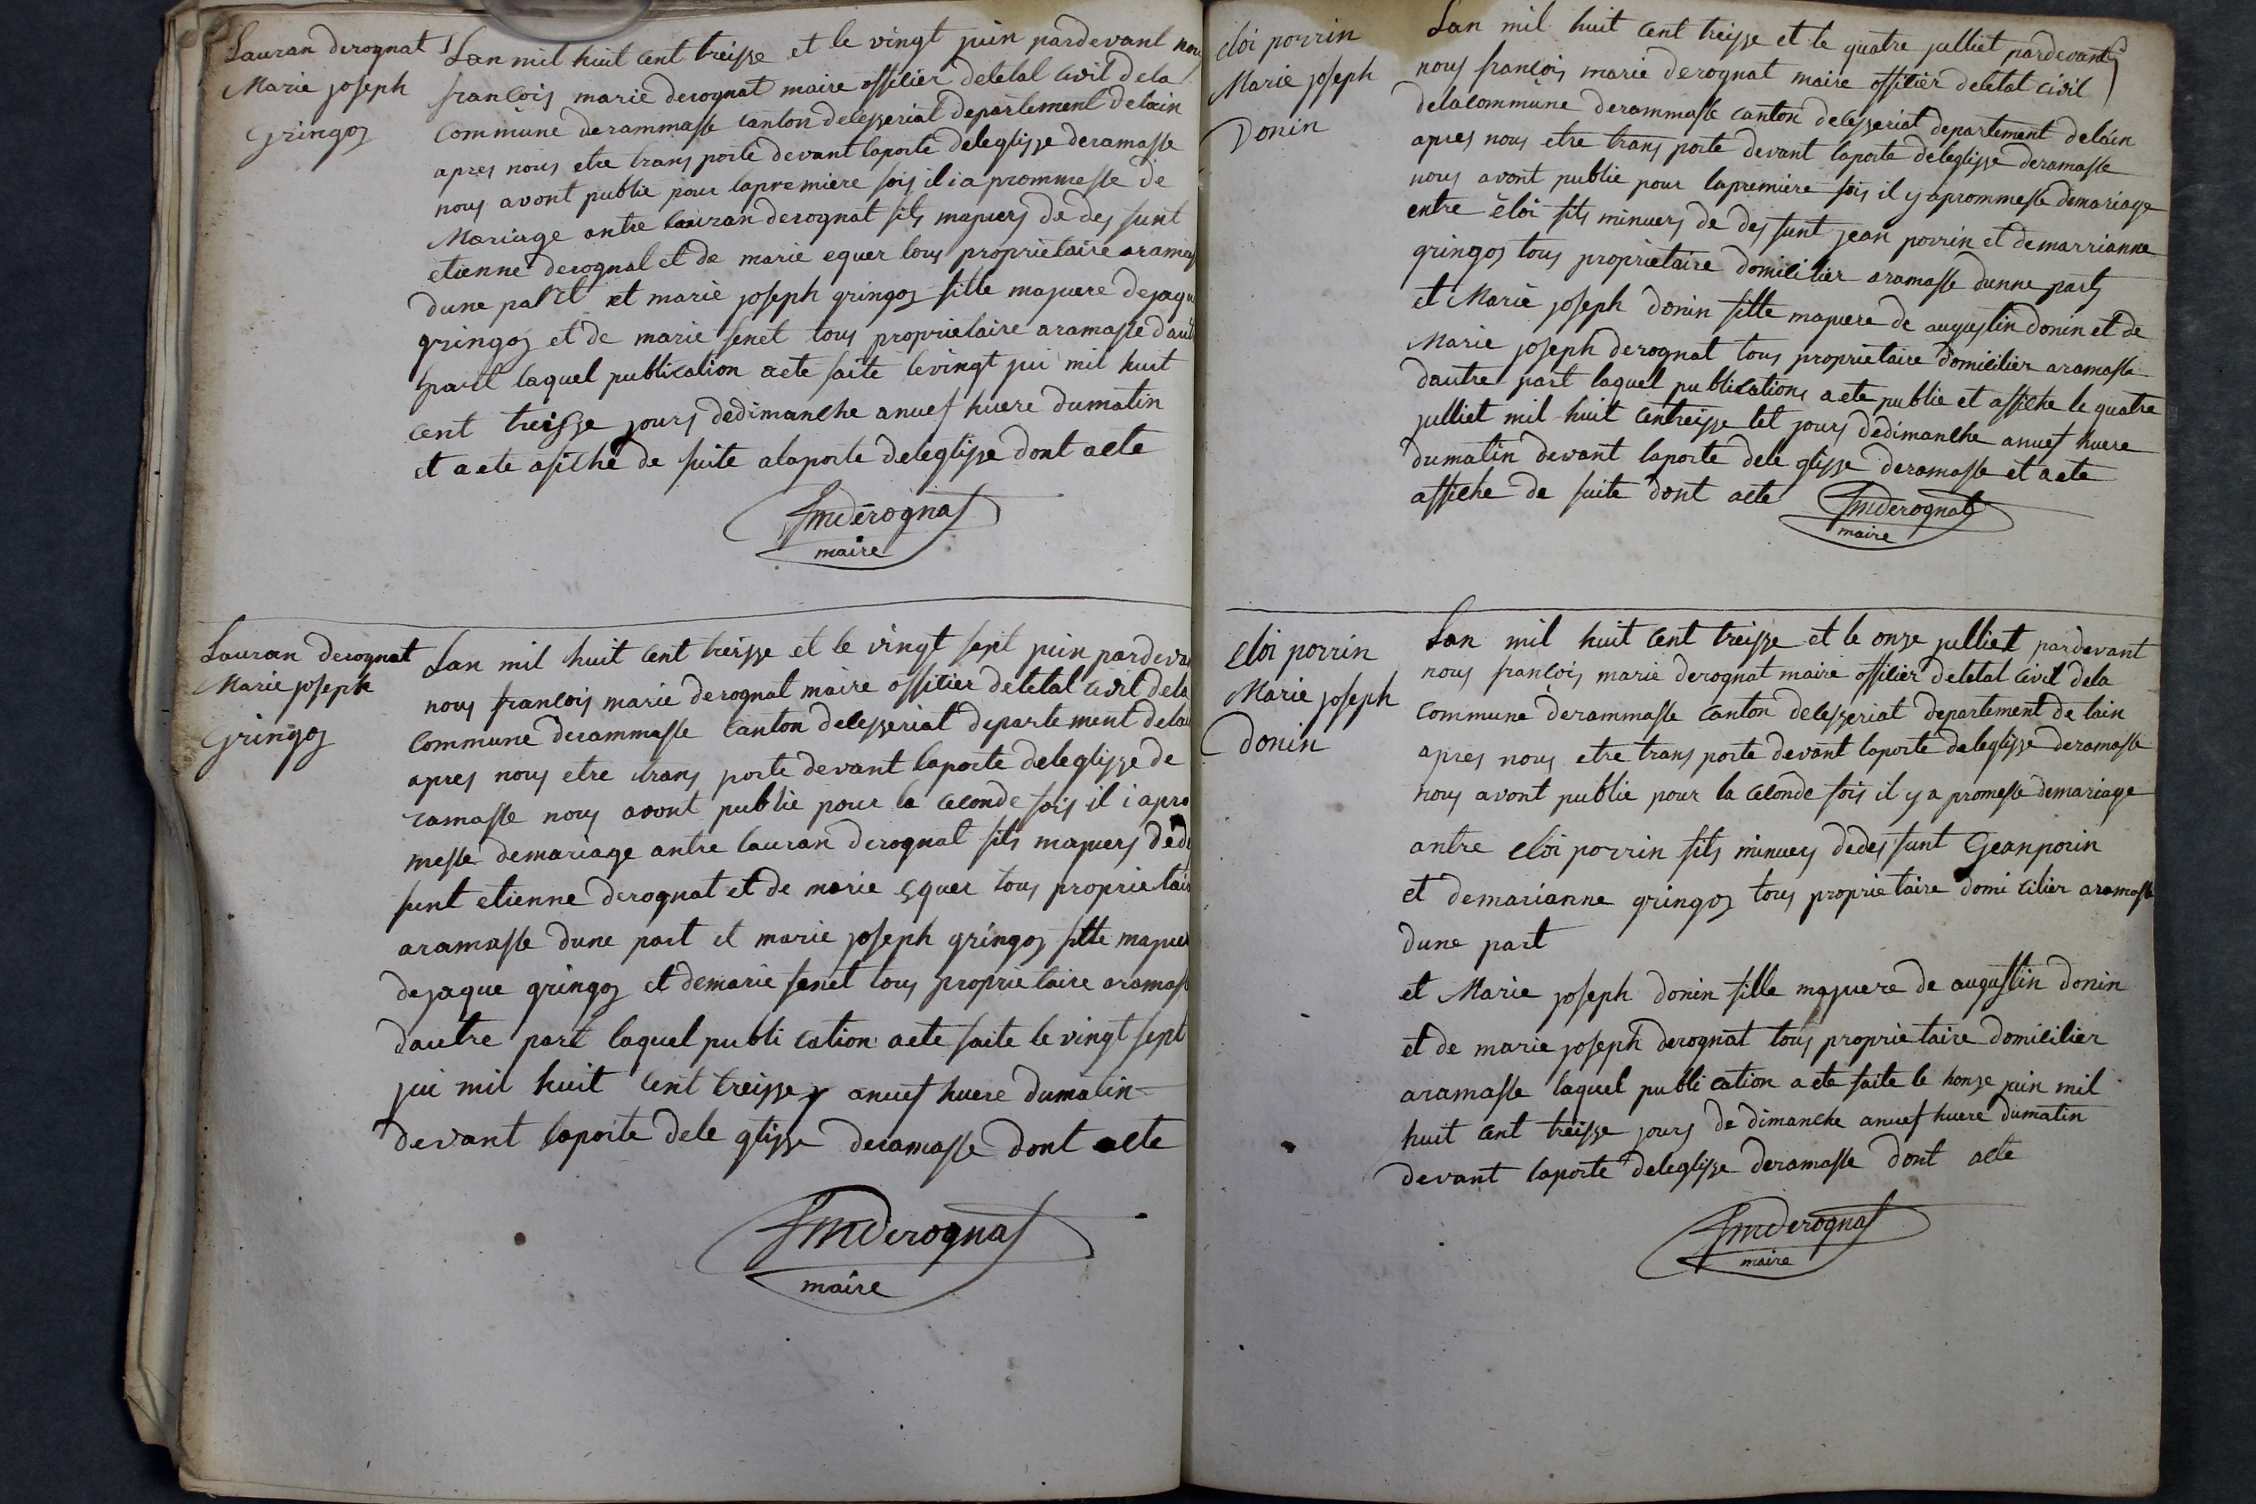 Lauran derognat
Marie joseph
Gringoz
Lan mil huit cent treisse et le vingt juin pardevant nous
francois marie derognat maire offitier deletat civil dela
Commune derammasse canton deleyseriat departement delain
apres nous etre trans porte devant laporte deleglisse deramasse
nous avont publie pour lapremiere fois il i a prommesse de
Mariage antre lauran derognat fils majuers de des funt
etienne derognat et de marie equer tous proprietaire aramas
dune part et marie joseph gringoz fille majuere dejaqu
gringoz et de marie fenet tous proprietaire aramasse daut
part laquel publication aete faite levingt jui mil huit
cent treisse jours dedimanche anuef huere dumatin
et aete afiche de suite alaporte deleglisse dont acte
fmderognat
maire
Lauran derognat
Marie joseph
Gringoz
Lan mil huit cent treisse et le vingt sept juin pardeva
nous francois marie derognat maire offitier deletat civil dela
Commune derammasse canton deleyseriat departement delai
apres nous etre trans porte devant laporte deleglisse de
ramasse nous avont publie pour la ceconde fois il i apro
messe demariage antre lauran derognat fils majuers dede
funt etienne derognat et de marie equer tous proprietair
aramasse dune part et marie joseph gringoz fille majuer
dejaque gringoz et demarie fenet tous proprietaire aramass
dautre part laquel publi cation aete faite le vingt sept
jui mil huit cent treisse anuef huere dumatin
devant laporte dele glisse deramasse dont acte
fmderognat
maire
eloi porrin
Marie joseph
Donin
Lan mil huit cent treisse et le quatre julliet pardevant
nous francois marie derognat maire offitier deletat civil
delacommune derammasse canton deleyseriat departement delain
apres nous etre trans porte devant laporte deleglisse deramasse
nous avont publie pour lapremiere fois il y aprommesse demariage
entre eloi fils minuers de des funt jean porrin et demarrianne
gringoz tous proprietaire domicilier aramasse dunne part
et Marie joseph donin fille majuere de augustin donin et de
Marie joseph derognat tous proprietaire domicilier aramasse
dautre part laquel publications aete publie et affiche le quatre
julliet mil huit centreisse let jours dedimanche anuef huere
dumatin devant laporte dele glisse deramasse et aete
affiche de suite dont acte
fmderognat
maire
eloi porrin
Marie joseph
donin
Lan mil huit cent treisse et le onze julliet pardevant
nous francois marie derognat maire offitier deletat civil dela
commune derammasse canton deleyseriat departement de lain
apres nous etre trans porte devant laporte deleglisse deramasse
nous avont publie pour la ceconde fois il y a promesse demariage
antre eloi porrin fils minuers dedes funt Gean porin
et demarianne gringoz tous proprietaire domi cilier aramasse
dune part
et Marie joseph donin fille majuere de augustin donin
et de marie joseph derognat tous proprietaire domicilier
aramasse laquel publi cation aete faite le honze juin mil
huit cent treisse jours de dimanche anuef huere dumatin
devant laporte deleglisse deramasse dont acte
fmderognat
maire